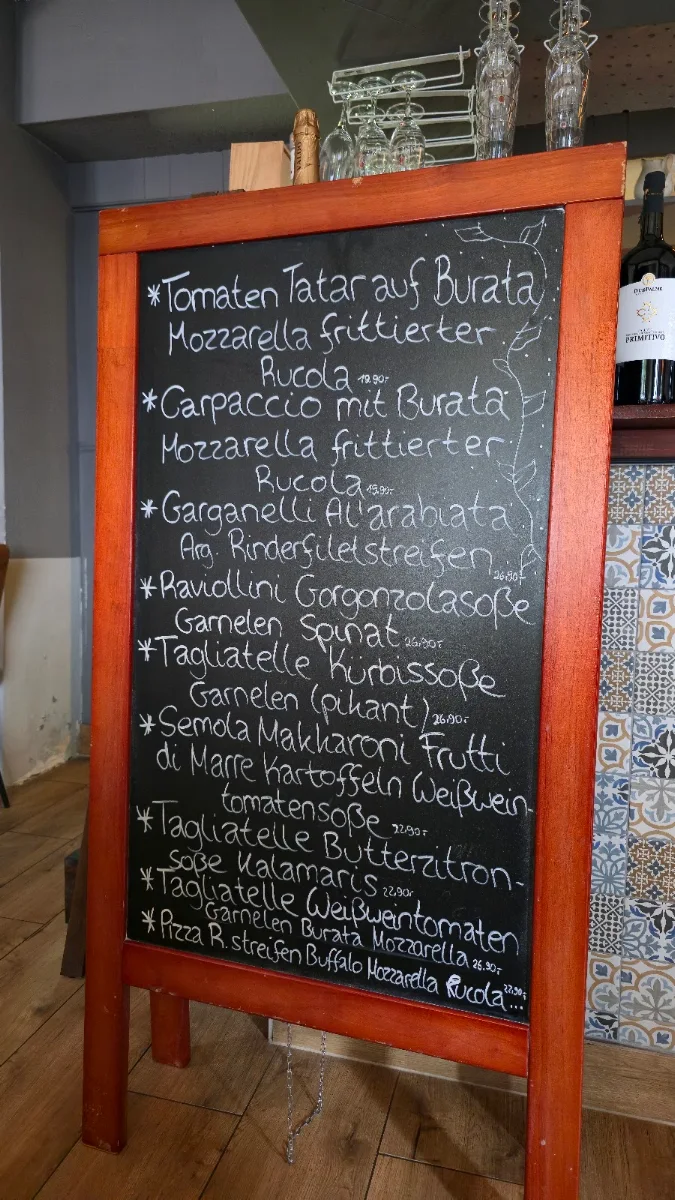 *Tomaten Tatar auf Burata
Mozzarella frittierter
Rucola 19.90-
*Carpaccio mit Burata
Mozzarella frittierter
Rucola 19.90-
*Garganelli Al'arabiata
Arg. Rinderfiletstreifen 26.90-
*Raviollini Gorgonzolasoße
Garnelen Spinat 26.90-
*Tagliatelle Kürbissoße
Garnelen (pikant) 26.90-
*Semola Makkaroni Frutti
di Marre Kartoffeln Weißwein-
tomatensoße 22.90-
*Tagliatelle Butterzitron-
soße Kalamaris 22.90-
*Tagliatelle Weißweintomaten
Garnelen Burata Mozzarella 26.90-
*Pizza R.streifen Buffalo Mozzarella Rucola... 22.90-
PRIMITIVO